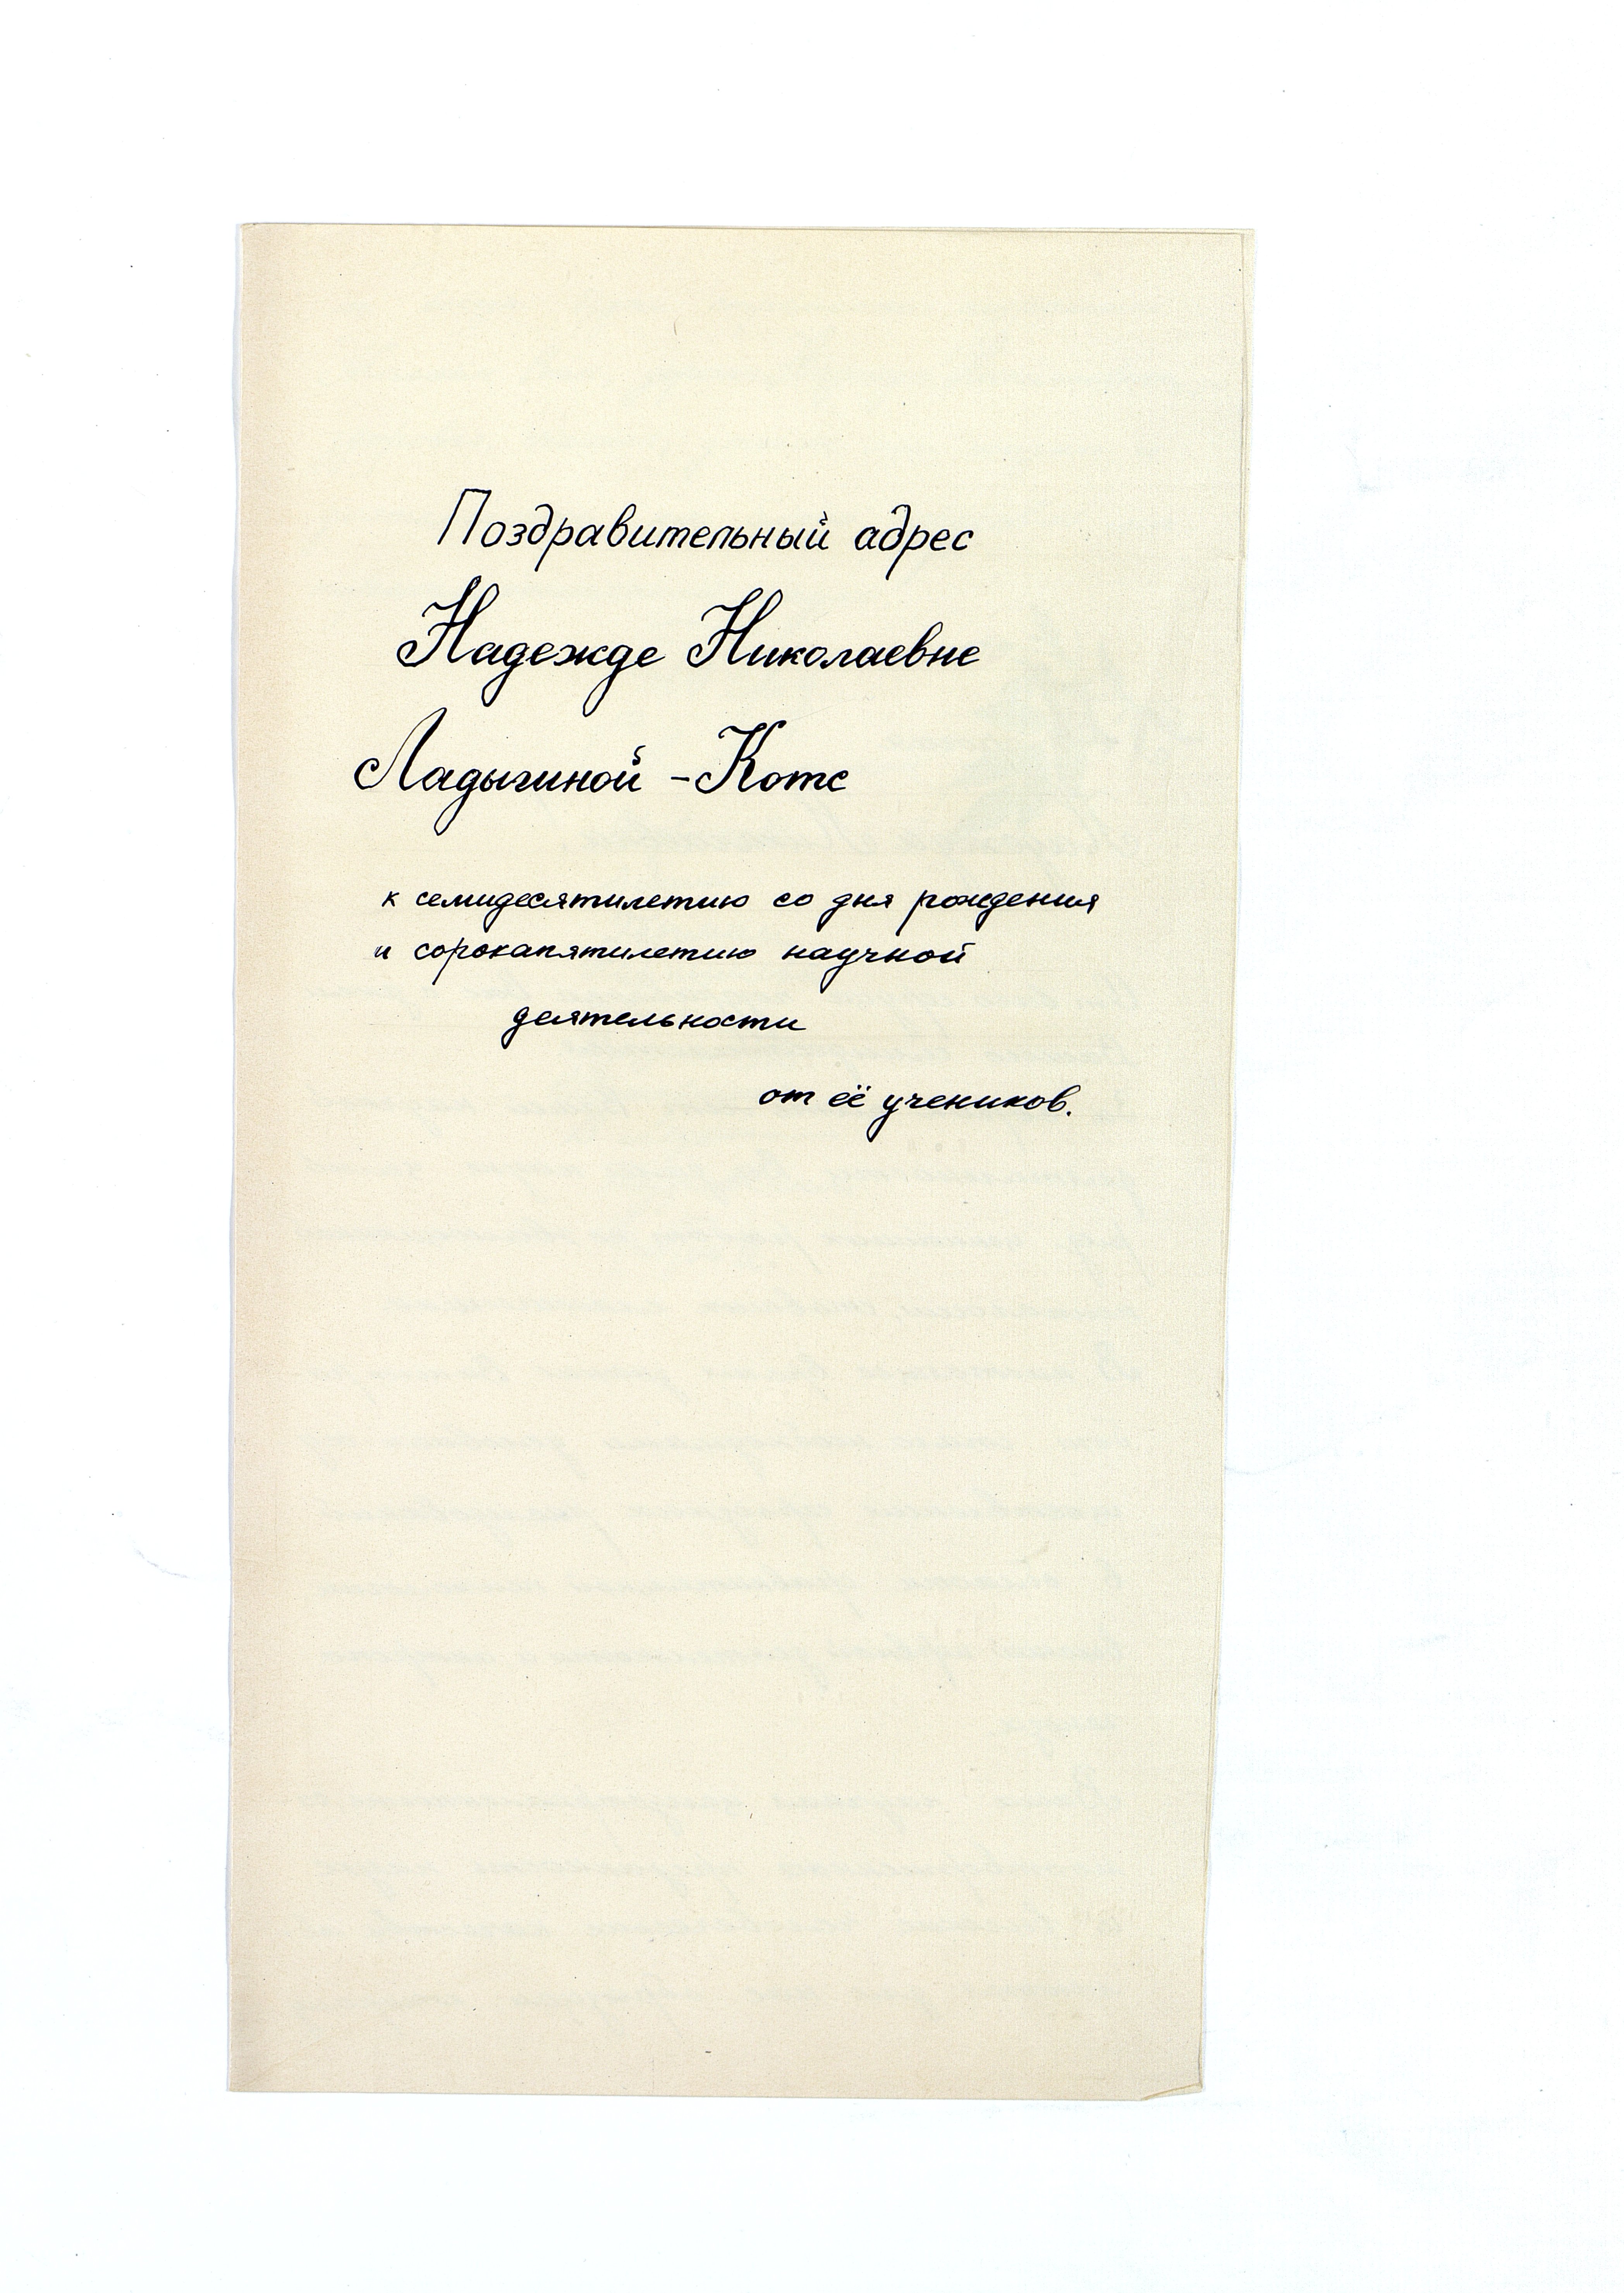 Поздравительный адрес
Надежде Николаевне
Ладыгиной - Котс
к семидесятилетию со дня рождения
и сорокапятилетию научной
деятельности
от её учеников.